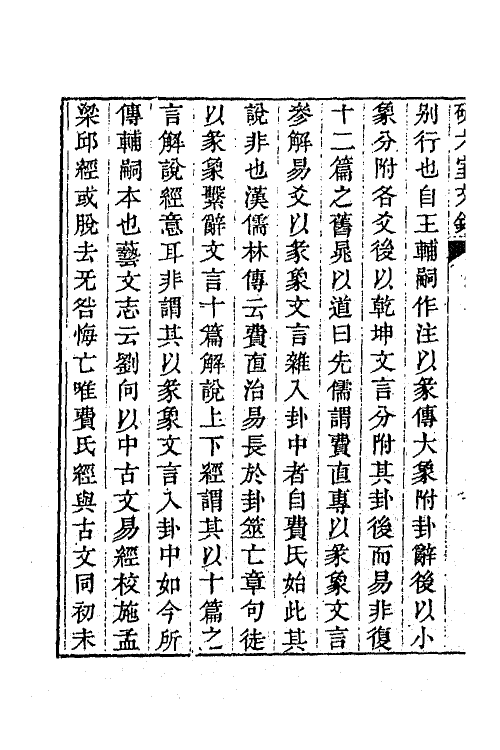 研六室文鈔
別行也自王輔嗣作注以彖傳大象附卦辭後以小
象分附各爻後以乾坤文言分附其卦後而易非復
十二篇之舊晁以道曰先儒謂費直專以彖象文言
參解易爻以彖象文言雜入卦中者自費氏始此其
說非也漢儒林傳云費直治易長於卦筮亡章句徒
以彖象繫辭文言十篇解說上下經謂其以十篇之
言解說經意耳非謂其以彖象文言入卦中如今所
傳輔嗣本也藝文志云劉向以中古文易經校施孟
梁邱經或脫去无咎悔亡唯費氏經與古文同初未